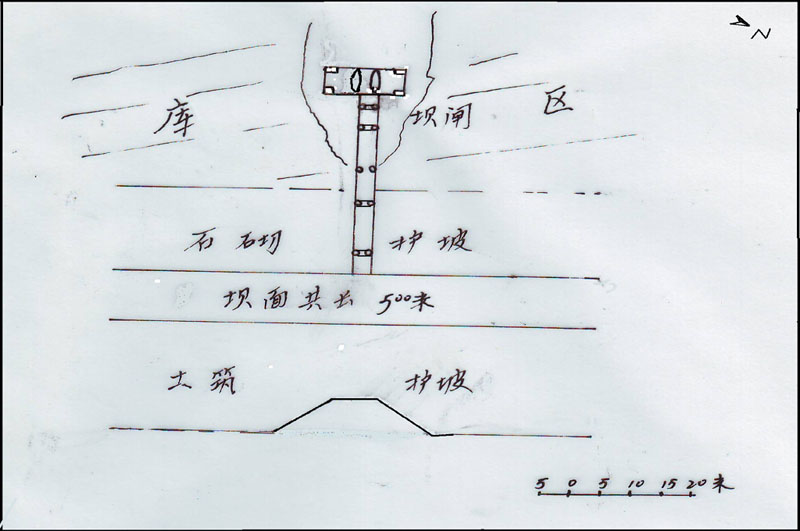 N
库 坝闸 区
石 石切 护 坡
坝面共长 500米
土筑 护坡
5 0 5 10 15 20 米